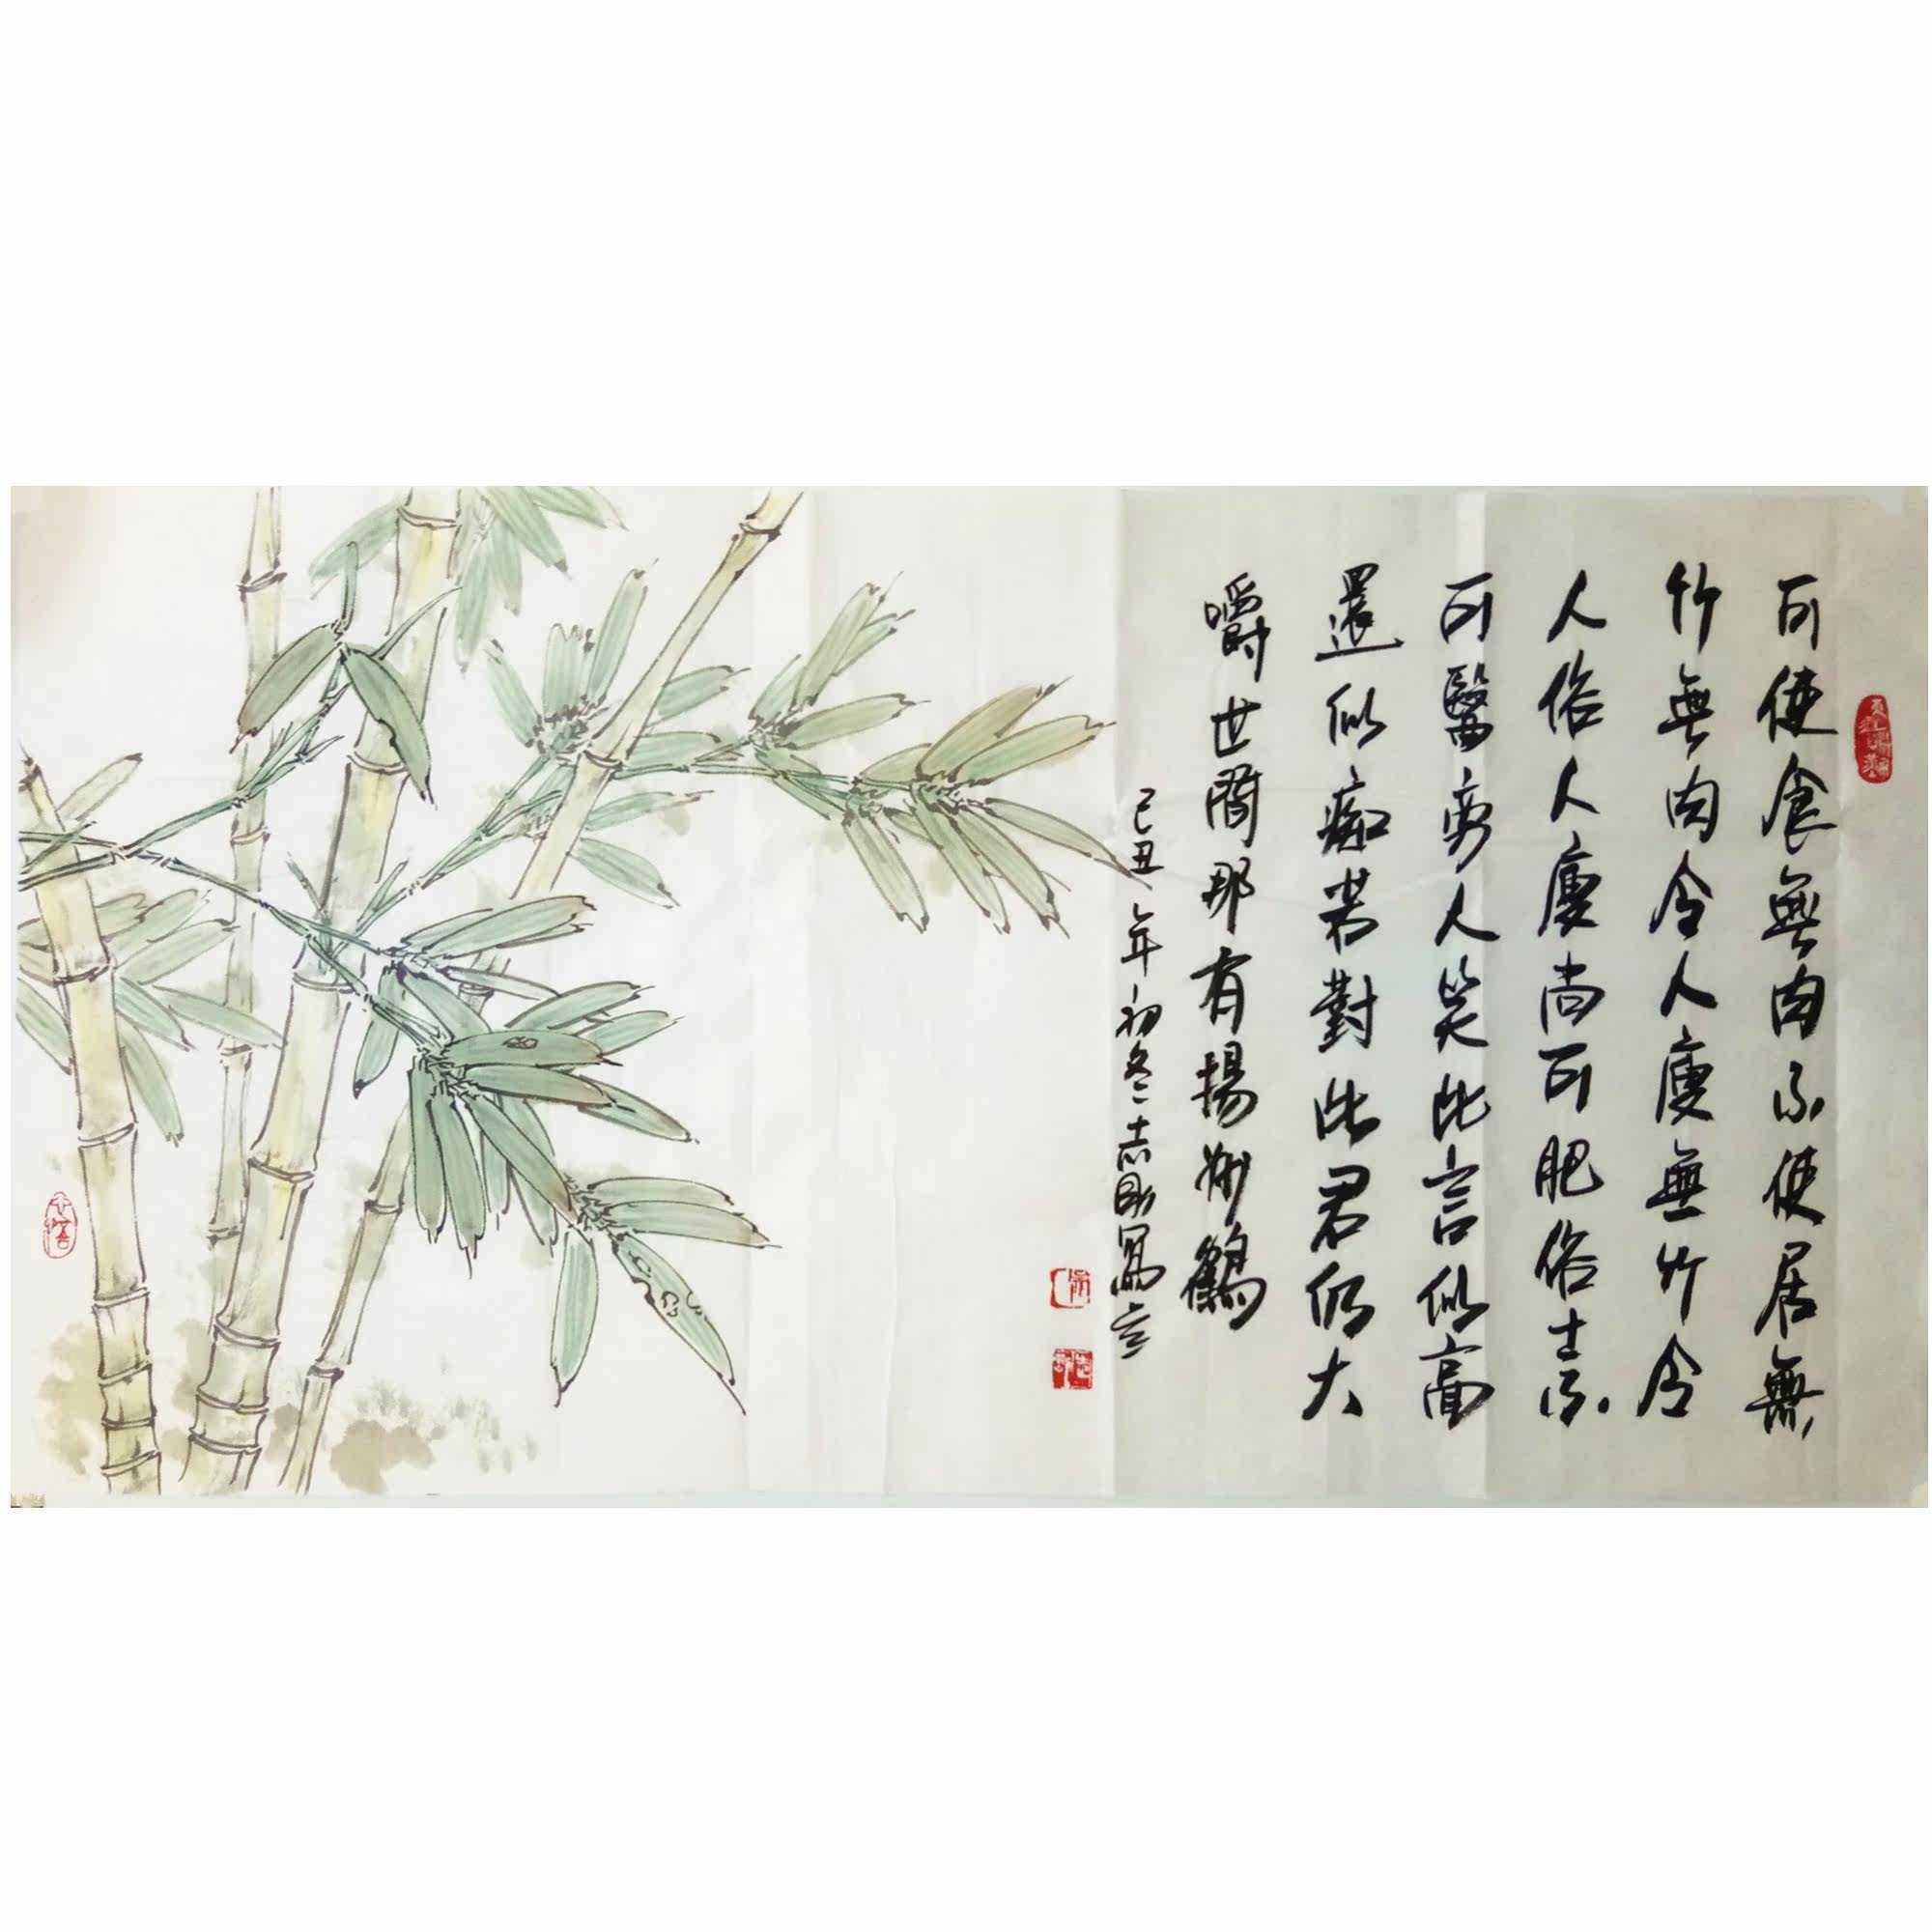 可使食無肉不使居無
竹無肉令人瘦無竹令
人俗人瘦尚可肥俗士不
可醫旁人笑此言似高
還似癡若對此君仍大
嚼世間那有揚州鶴
己丑年初冬志剛寫意